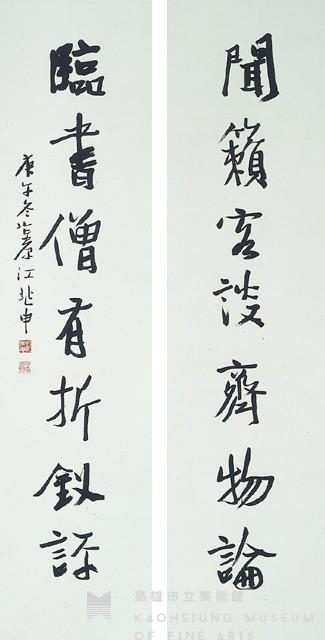 聞籟客談齊物論
臨書僧有折釵評
庚午冬暮江兆申
高雄市立美術館
KAOHSIUNG MUSEUM
OF FINE ARTS